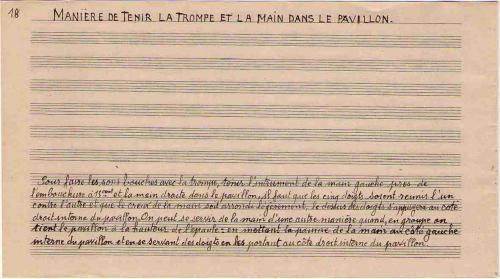 18
MANIÈRE DE TENIR LA TROMPE ET LA MAIN DANS LE PAVILLON.
Pour faire les sons bouchés avec la trompe, tenir l'intrument de la main gauche près de
l'embouchure à et la main droite dans le pavillon, il faut que les cinq doigts soient réunis l'un
contre l'autre et que le creux de la main soit arrondi légèrement, le dessus des doigts s'appuyera au côté
droit interne du pavillon. On peut se servir de la main d'une autre manière quand, en groupe on
tient le pavillon à la hauteur de l'épaule: en mettant la paume de la main au côté gauche
interne du pavillon et en se servant des doigts en les portant au côté droit interne du pavillon.